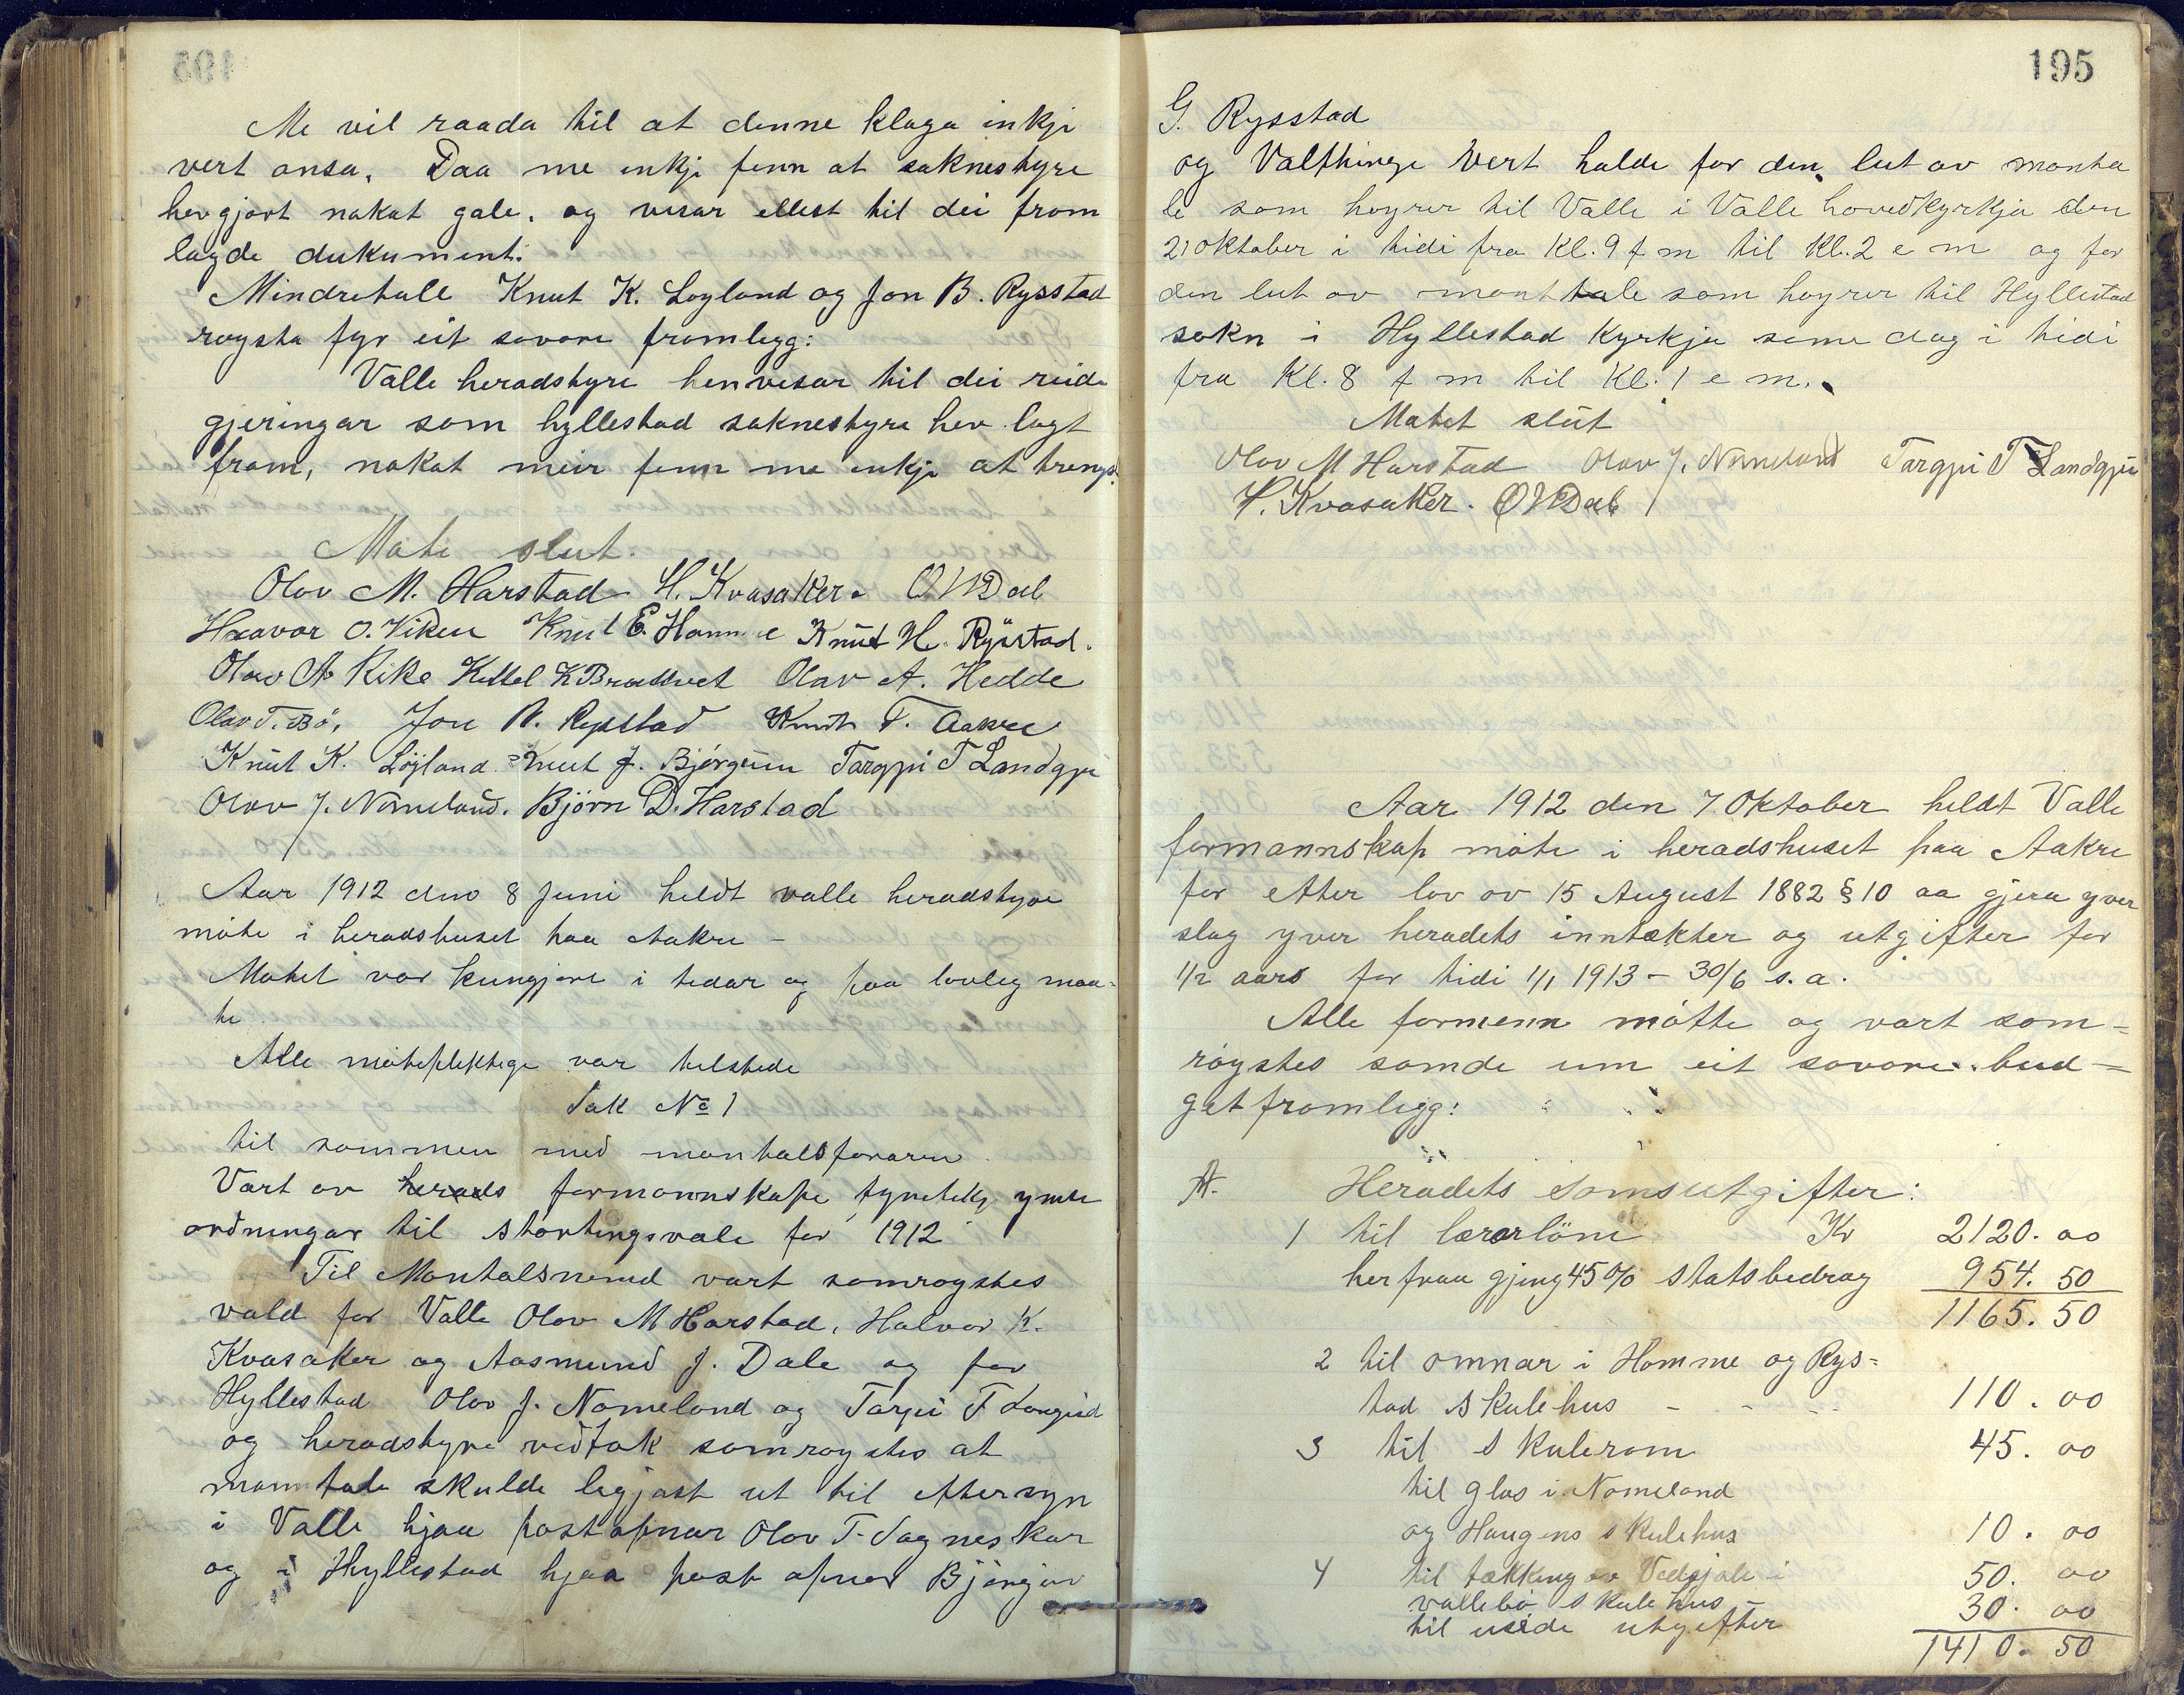 Me vil raada til at denne klaga inkje
vert ansa. Daa me inkje fenn at saknestyre
hev gjort nakat gale, og visar ellest til dei fram
lagde dukument.
Mindretall Knut K. Løyland og Jon B. Rysstad
røysta fyr eit sovore framlegg:
Valle heradstyre henvisar til dei
gjeringar som hyllestad saknestyre hev lagt
fram, nakat meir fenn me inkje at trengs.
Møte slut.
Olov M. Harstad H. Kvasaker. O M Dal
Haavor O. Viken Knut E. Homme Knut H. Rysstad.
Olav A. Rike Kittel K Bradtvet Olav A. Hedde
Olav T. Bø. Jon B. Rysstad Knut T. Aakre
Knut K. Løyland Knut J. Bjørgum Targjei T Landgjei
Olov J. Nomeland. Björn D. Harstad
Aar 1912 den 8 Juni heldt valle heradstyre
møte i heradshuset paa Aakre -
Møtet var kungjort i tedar og paa lovleg maa-
te
Alle møtepliktige var telstede
Sak No 1
til sammen med mantalsføraren
Vart av herads formannskape ymse
ordningar til stortingsvale for 1912
Til Mantalsnemd vart samrøystes
vald for Valle Olov M Harstad, Halvor K.
Kvasaker og Aasmund J. Dale og for
Hyllestad Olov J. Nomeland og Targjei T Langeid
og heradstyre vedtok samrøystes at
manntale skulde leggjast ut til eftersyn
i Valle hjaa postopnar Olov T. Sagneskar
og i Hyllestad hjaa post opnar Bjørgúv
195
G. Rysstad
og Valthinge vert halde for den lut av manta
le som høyrer til Valle i Valle hovedkyrkja den
21 oktober i tidi fra Kl. 9 f m til Kl. 2 e m og for
den lut av manttale som høyrer til Hyllestad
sokn i Hyllestad Kyrkja same dag i tidi
fra Kl. 8 f m til Kl. 1 e m.
Møtet slut
Olov M Harstad Olov J. Nomeland Targjei T Landgjei
H. Kvasaker. O M Dal
Aar 1912 den 7 Oktober heldt Valle
formannskap møte i heradshuset paa Aakre
for etter lov av 15 August 1882 § 10 aa gjera yver
slag yver heradets inntækter og utgifter for
1/2 aars for tidi 1/1 1913 - 30/6 s. a.
Alle formenn møtte og vart sam=
røystes samde um eit sovore bud=
getframlegg:
A. Heradets Samsutgifter:
1 til lærarlöni Kr 2120. 00
herfraa gjeng 45% statsbedrag 954. 50
1165. 50
2 til omnar i Homme og Rys=
tad Skulehus - - - 110. 00
3 til Skulerom 45. 00
til glas i Nomeland
og Haugens skulehus 10. 00
4 til tækking av Vedsjale i 50. 00
vallebø Skulehus
til uvide utgifter 30. 00
1410. 50